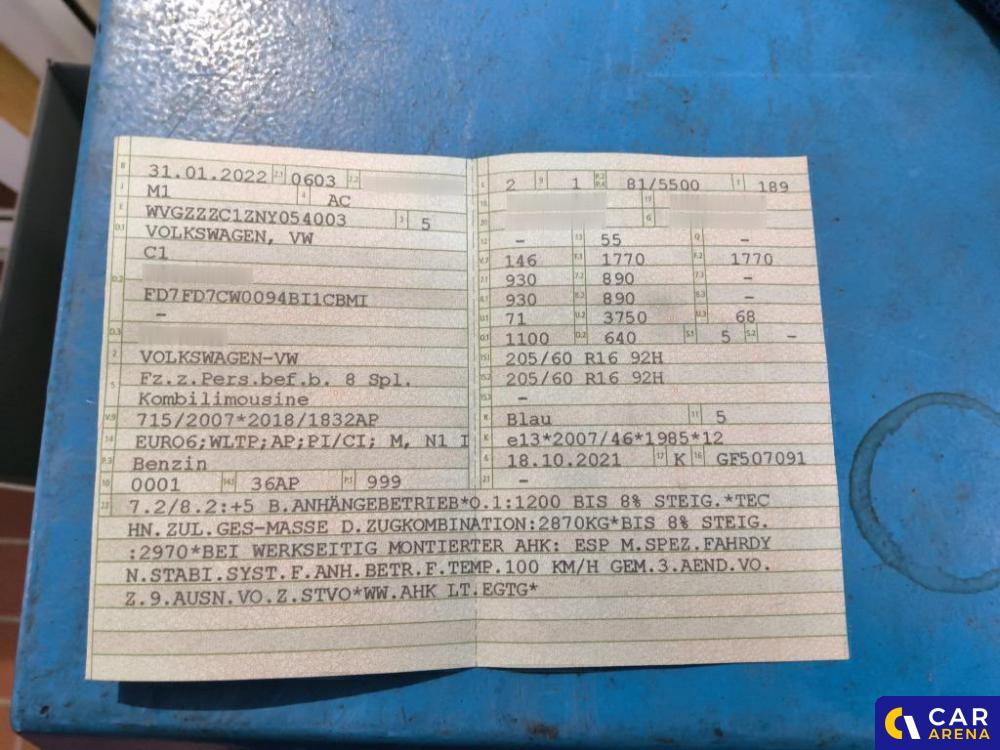 B 31.01.2022 2.1 0603 2.2
J M1 4 AC
E WVGZZZC1ZNY054003 3 5
D.1 VOLKSWAGEN, VW
C1
D.2
FD7FD7CW0094BI1CBMI
–
D.3
2 VOLKSWAGEN-VW
5 Fz.z.Pers.bef.b. 8 Spl.
Kombilimousine
V.9 715/2007*2018/1832AP
14 EURO6;WLTP;AP;PI/CI; M, N1 I
P.3 Benzin
10 0001 14.1 36AP P.1 999
L 2 9 1 P.2 P.4 81/5500 T 189
18 19
20 G
12 – 13 55 Q –
V.7 146 F.1 1770 F.2 1770
7.1 930 7.2 890 7.3 –
8.1 930 8.2 890 8.3 –
U.1 71 U.2 3750 U.3 68
O.1 1100 O.2 640 S.1 5 S.2 –
15.1 205/60 R16 92H
15.2 205/60 R16 92H
15.3 –
R Blau 11 5
K e13*2007/46*1985*12
6 18.10.2021 17 K 16 GF507091
21 –
22 7.2/8.2:+5 B.ANHÄNGEBETRIEB*O.1:1200 BIS 8% STEIG.*TEC
HN.ZUL.GES-MASSE D.ZUGKOMBINATION:2870KG*BIS 8% STEIG.
:2970*BEI WERKSEITIG MONTIERTER AHK: ESP M.SPEZ.FAHRDY
N.STABI.SYST.F.ANH.BETR.F.TEMP.100 KM/H GEM.3.AEND.VO.
Z.9.AUSN.VO.Z.STVO*WW.AHK LT.EGTG*
CAR
ARENA